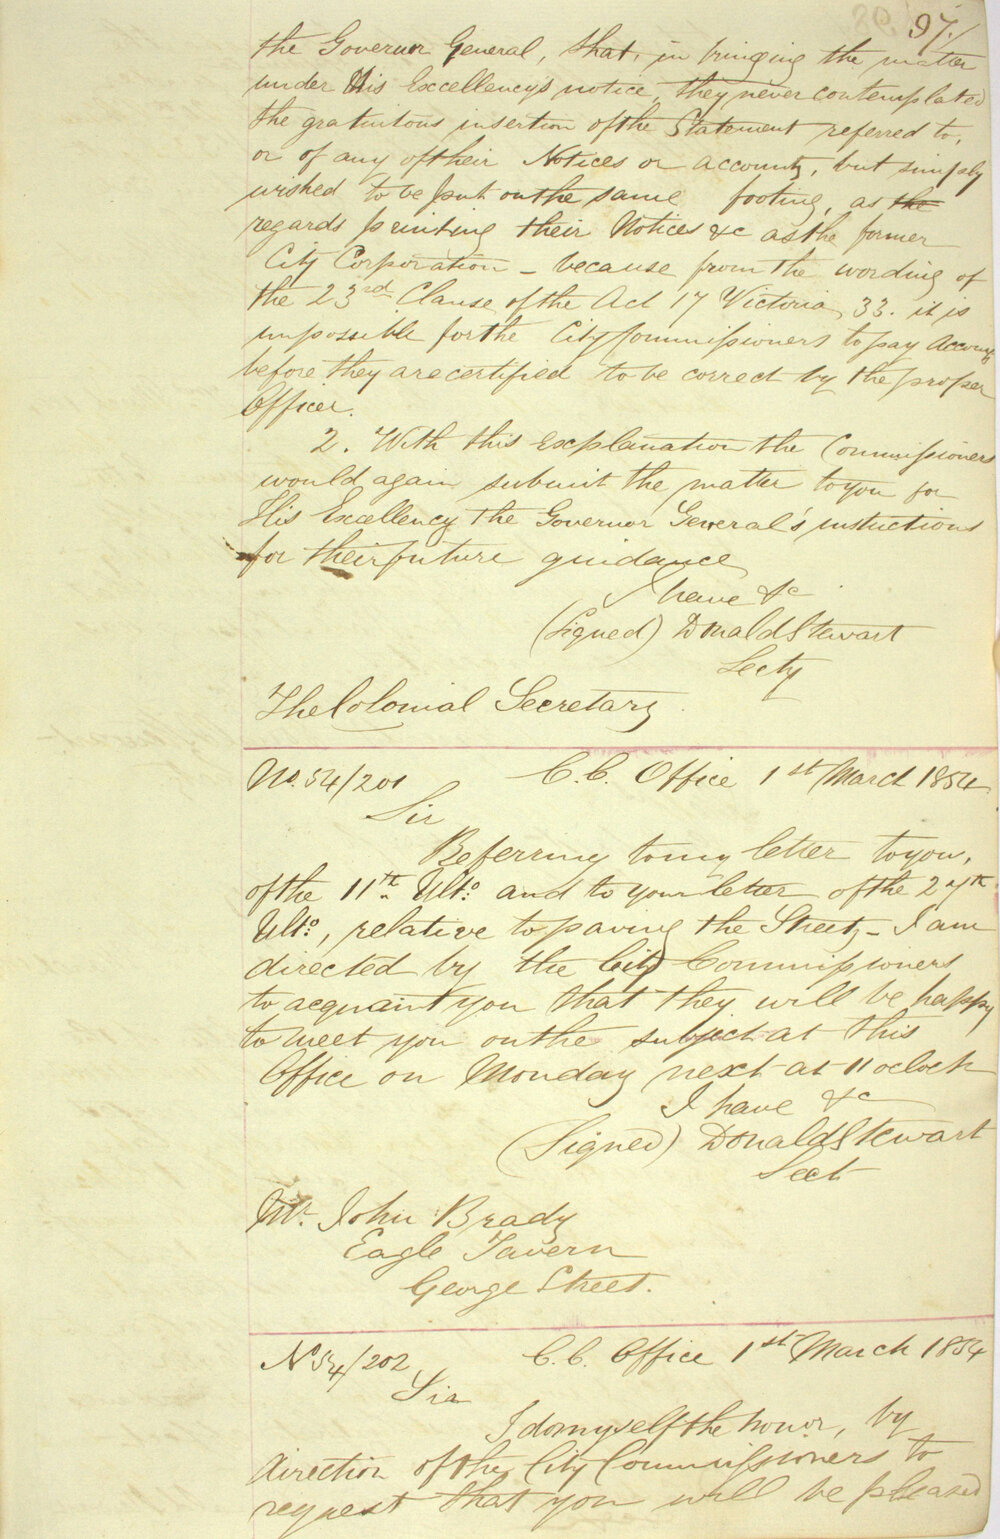 97./
the Governor General, that, in bringing the matter
under His Excellency's notice, they never contemplated
the gratuitous insertion of the Statement referred to,
or of any of their Notices or accounts, but simply
wished to be put on the same footing, as the
regards printing their Notices &c as the former
City Corporation – because from the wording of
the 23rd Clause of the Act 17 Victoria 33. it is
impossible for the City Commissioners to pay Accounts
before they are certified to be correct by the proper
Officer.
2. With this explanation the Commissioners
would again submit the matter to you for
His Excellency the Governor General's instuctions
for their future guidance
I have &c
(Signed) Donald Stewart
Secty
The Colonial Secretary
No. 54/201 C. C. Office 1st March 1854
Sir
Referring to my letter to you,
of the 11th Ulto. and to your letter of the 27th
Ulto., relative to paving the Streets – I am
directed by the City Commissioners
to acquaint you that they will be happy
to meet you on the subject at this
Office on Monday next at 11 oclock
I have &c
(Signed) Donald Stewart
Sect
Mr. John Brady
Eagle Tavern
George Street.
No 54/202 C. C. Office 1st March 1854
Sir
I do myself the honor, by
direction of the City Commissioners to
request that you will be pleased